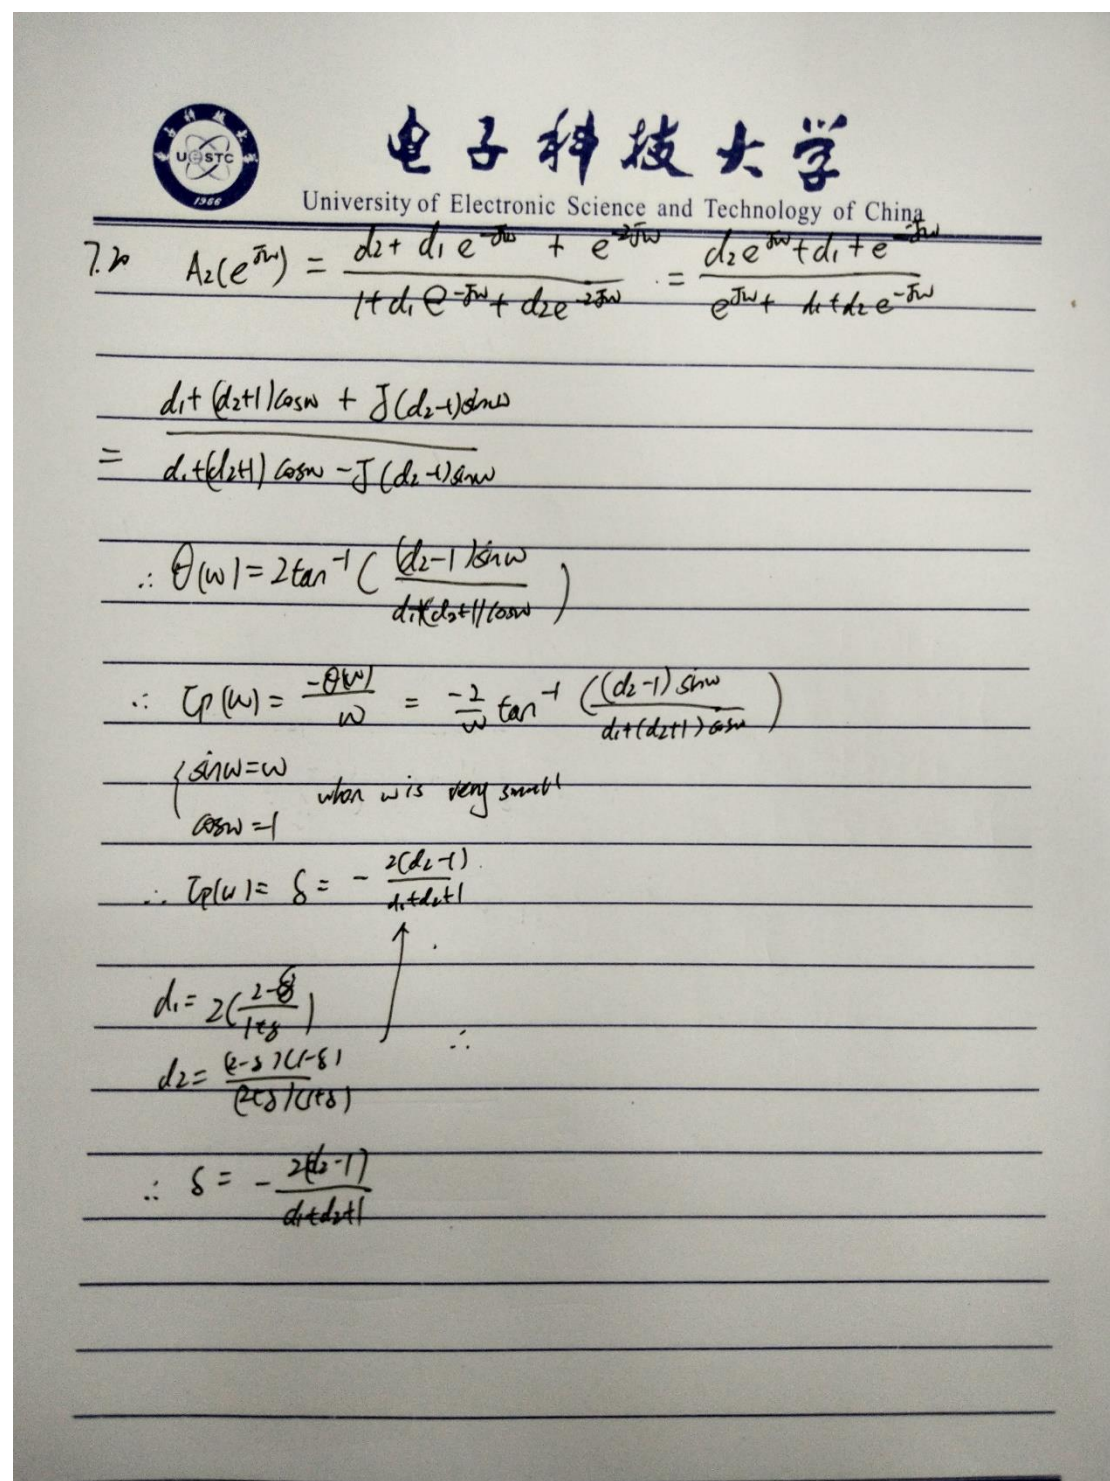 电子科技大学
UESTC
1956
University of Electronic Science and Technology of China
7.20 A₂(e^{jω}) = (d₂ + d₁e^{-jω} + e^{-2jω}) / (1 + d₁e^{-jω} + d₂e^{-2jω}) = (d₂e^{jω} + d₁ + e^{-jω}) / (e^{jω} + d₁ + d₂e^{-jω})
= (d₁ + (d₂+1)cosω + j(d₂-1)sinω) / (d₁ + (d₂+1)cosω - j(d₂-1)sinω)
∴ θ(ω) = 2tan⁻¹( (d₂-1)sinω / (d₁+(d₂+1)cosω) )
∴ τp(ω) = -θ(ω)/ω = -2/ω tan⁻¹( (d₂-1)sinω / (d₁+(d₂+1)cosω) )
{ sinω=ω
cosω=1
when ω is very small
∴ τp(ω) = δ = - 2(d₂-1) / (d₁+d₂+1)
d₁ = 2( (2-δ) / (1+δ) )
∴
d₂ = (2-δ)(1-δ) / (2+δ)(1+δ)
∴ δ = - 2(d₂-1) / (d₁+d₂+1)